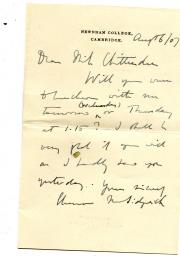 NEWNHAM COLLEGE,
CAMBRIDGE.
Aug 16/07
Dear Miss Chittenden
Will you come
to luncheon with me
(Wednesday)
tomorrow or Thursday
at 1.15? I shall be
very glad if you will
as I hardly saw you
yesterday. Yours sincerely
Eleanor M Sidgwick